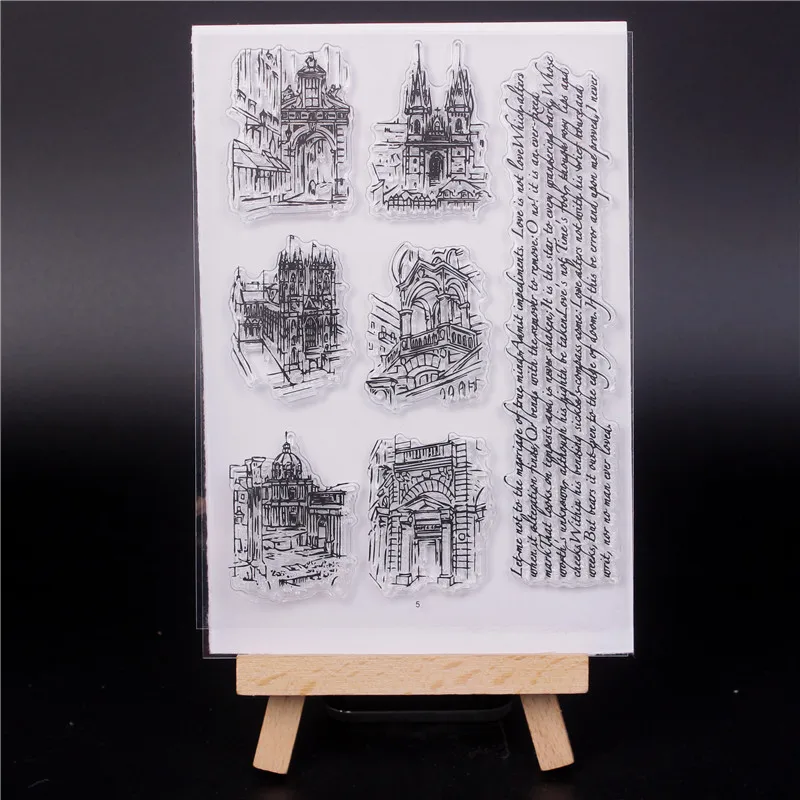 Let me not to the marriage of true minds Admit impediments. Love is not love Which alters
when it alteration finds, Or bends with the remover to remove: O no! it is an ever-fixed
mark That looks on tempests and is never shaken; It is the star to every wandering bark, Whose
worth's unknown, although his height be taken. Love's not Time's fool, though rosy lips and
cheeks Within his bending sickle's compass come: Love alters not with his brief hours and
weeks, But bears it out even to the edge of doom. If this be error and upon me proved, I never
writ, nor no man ever loved.
5